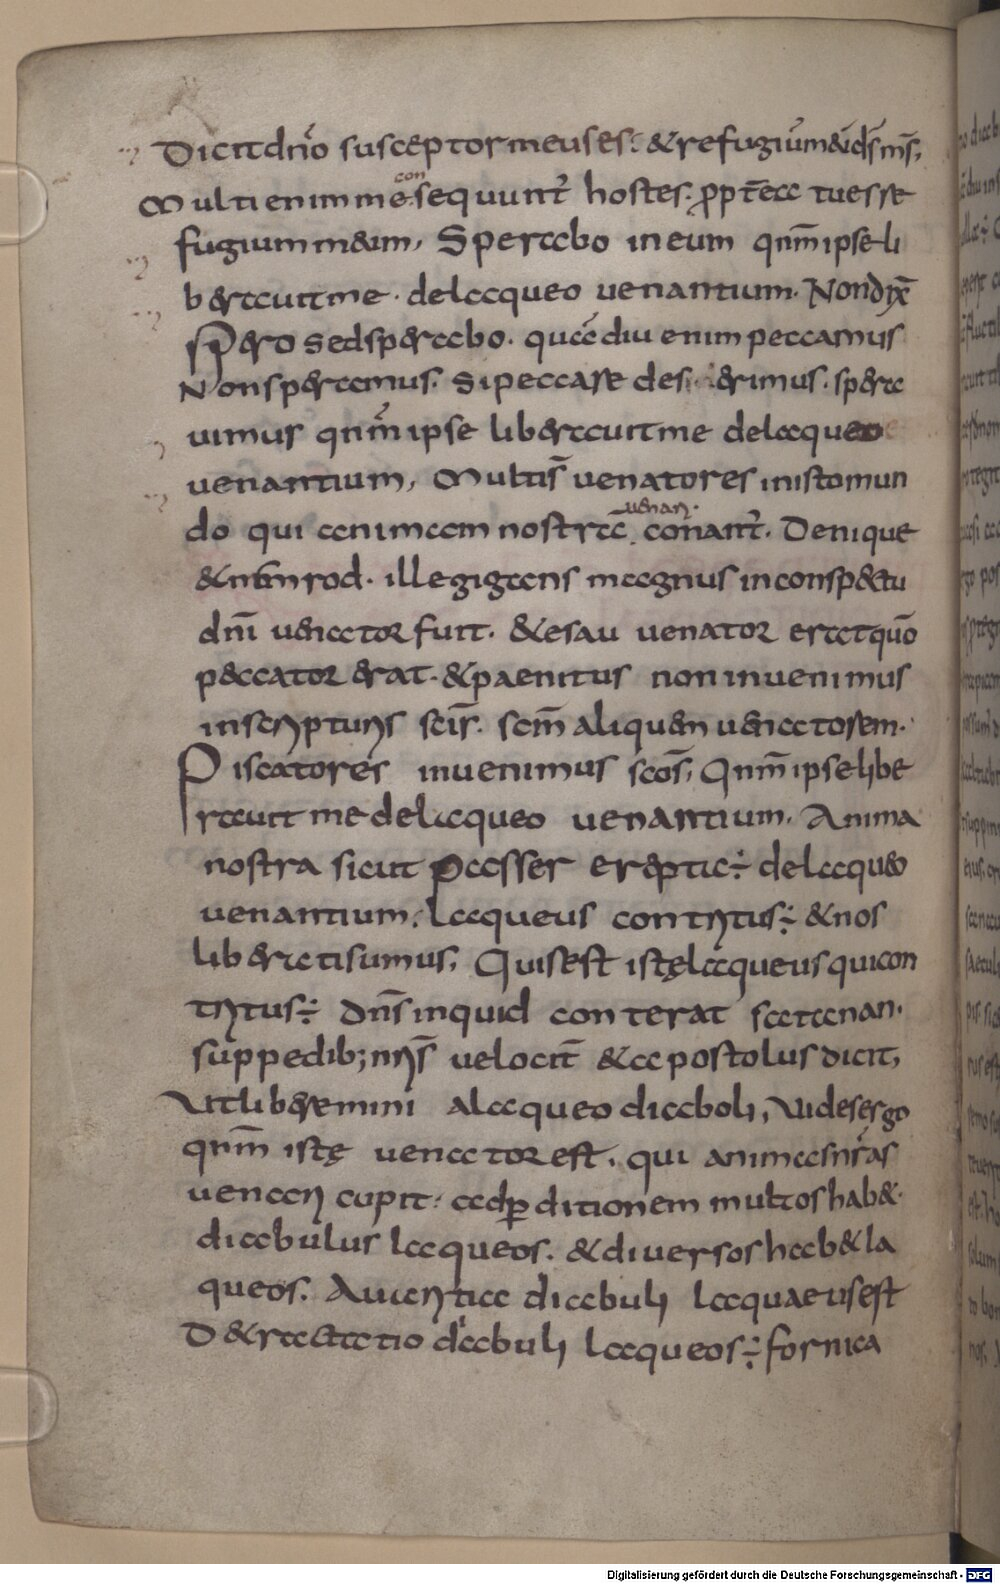 Dicit dn̄o susceptor meus es. & refugiū meū & ds̄ ms̄,
con
Multi enim me sequunt̄ hostes. ꝓpt̄ea tu es re
fugium meum, Sperabo in eum qn̄m ipse li
berauit me. de laqueo uenantium. Non dix̄
spero sed sperabo. quā diu enim peccamus
Non speramus. Si peccare des erimus. spera
uimus qn̄m ipse liberauit me de laqueo
uenantium, Multi s̄ uenatores in isto mun
uenari.
do qui animam nostrā conant̄. Denique
& nemrod. ille gigans magnus in conspectu
dn̄i uenator fuit. & esau uenator erat quō
peccator erat. & paenitus non inuenimus
in scripturis scīs. scm̄ aliquem uenatorem.
Piscatores inuenimus scōs, Qnm̄ ipse libe
rauit me de laqueo uenantium. Anima
nostra sicut passer erepta ÷ de laqueo
uenantium. Laqueus contritus ÷ & nos
liberati sumus, Quis est istę laqueus qui con
tritus ÷ dn̄s inquid conterat satanan.
sup pedib; nr̄is uelocit̄ & apostolus dicit,
Ut liberemini a laqueo diaboli, Uides ergo
qnm̄ istę uenator est. qui animas nr̄as
uenari cupit. ad ꝑditionem multos hab&.
diabulus laqueos. & diuersos hab& la
queos. Auaritia diabuli laquaeus est
D&ractatio diabuli laqueos ÷ fornica
Digitalisierung gefördert durch die Deutsche Forschungsgemeinschaft - DFG